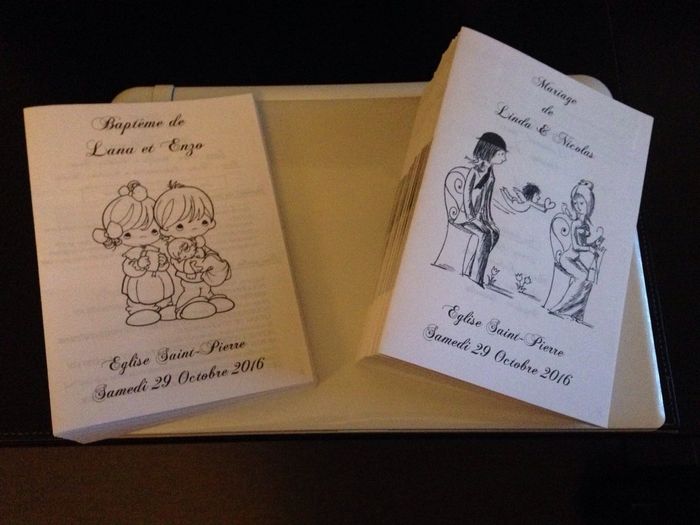 Baptême de
Lana et Enzo
Eglise Saint-Pierre
Samedi 29 Octobre 2016
Mariage
de
Linda & Nicolas
Eglise Saint-Pierre
Samedi 29 Octobre 2016